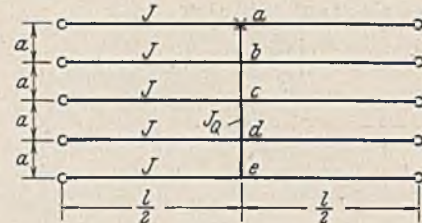 J a
a
J b
a
J c
a
J_Q
J d
a
J e
l/2 l/2